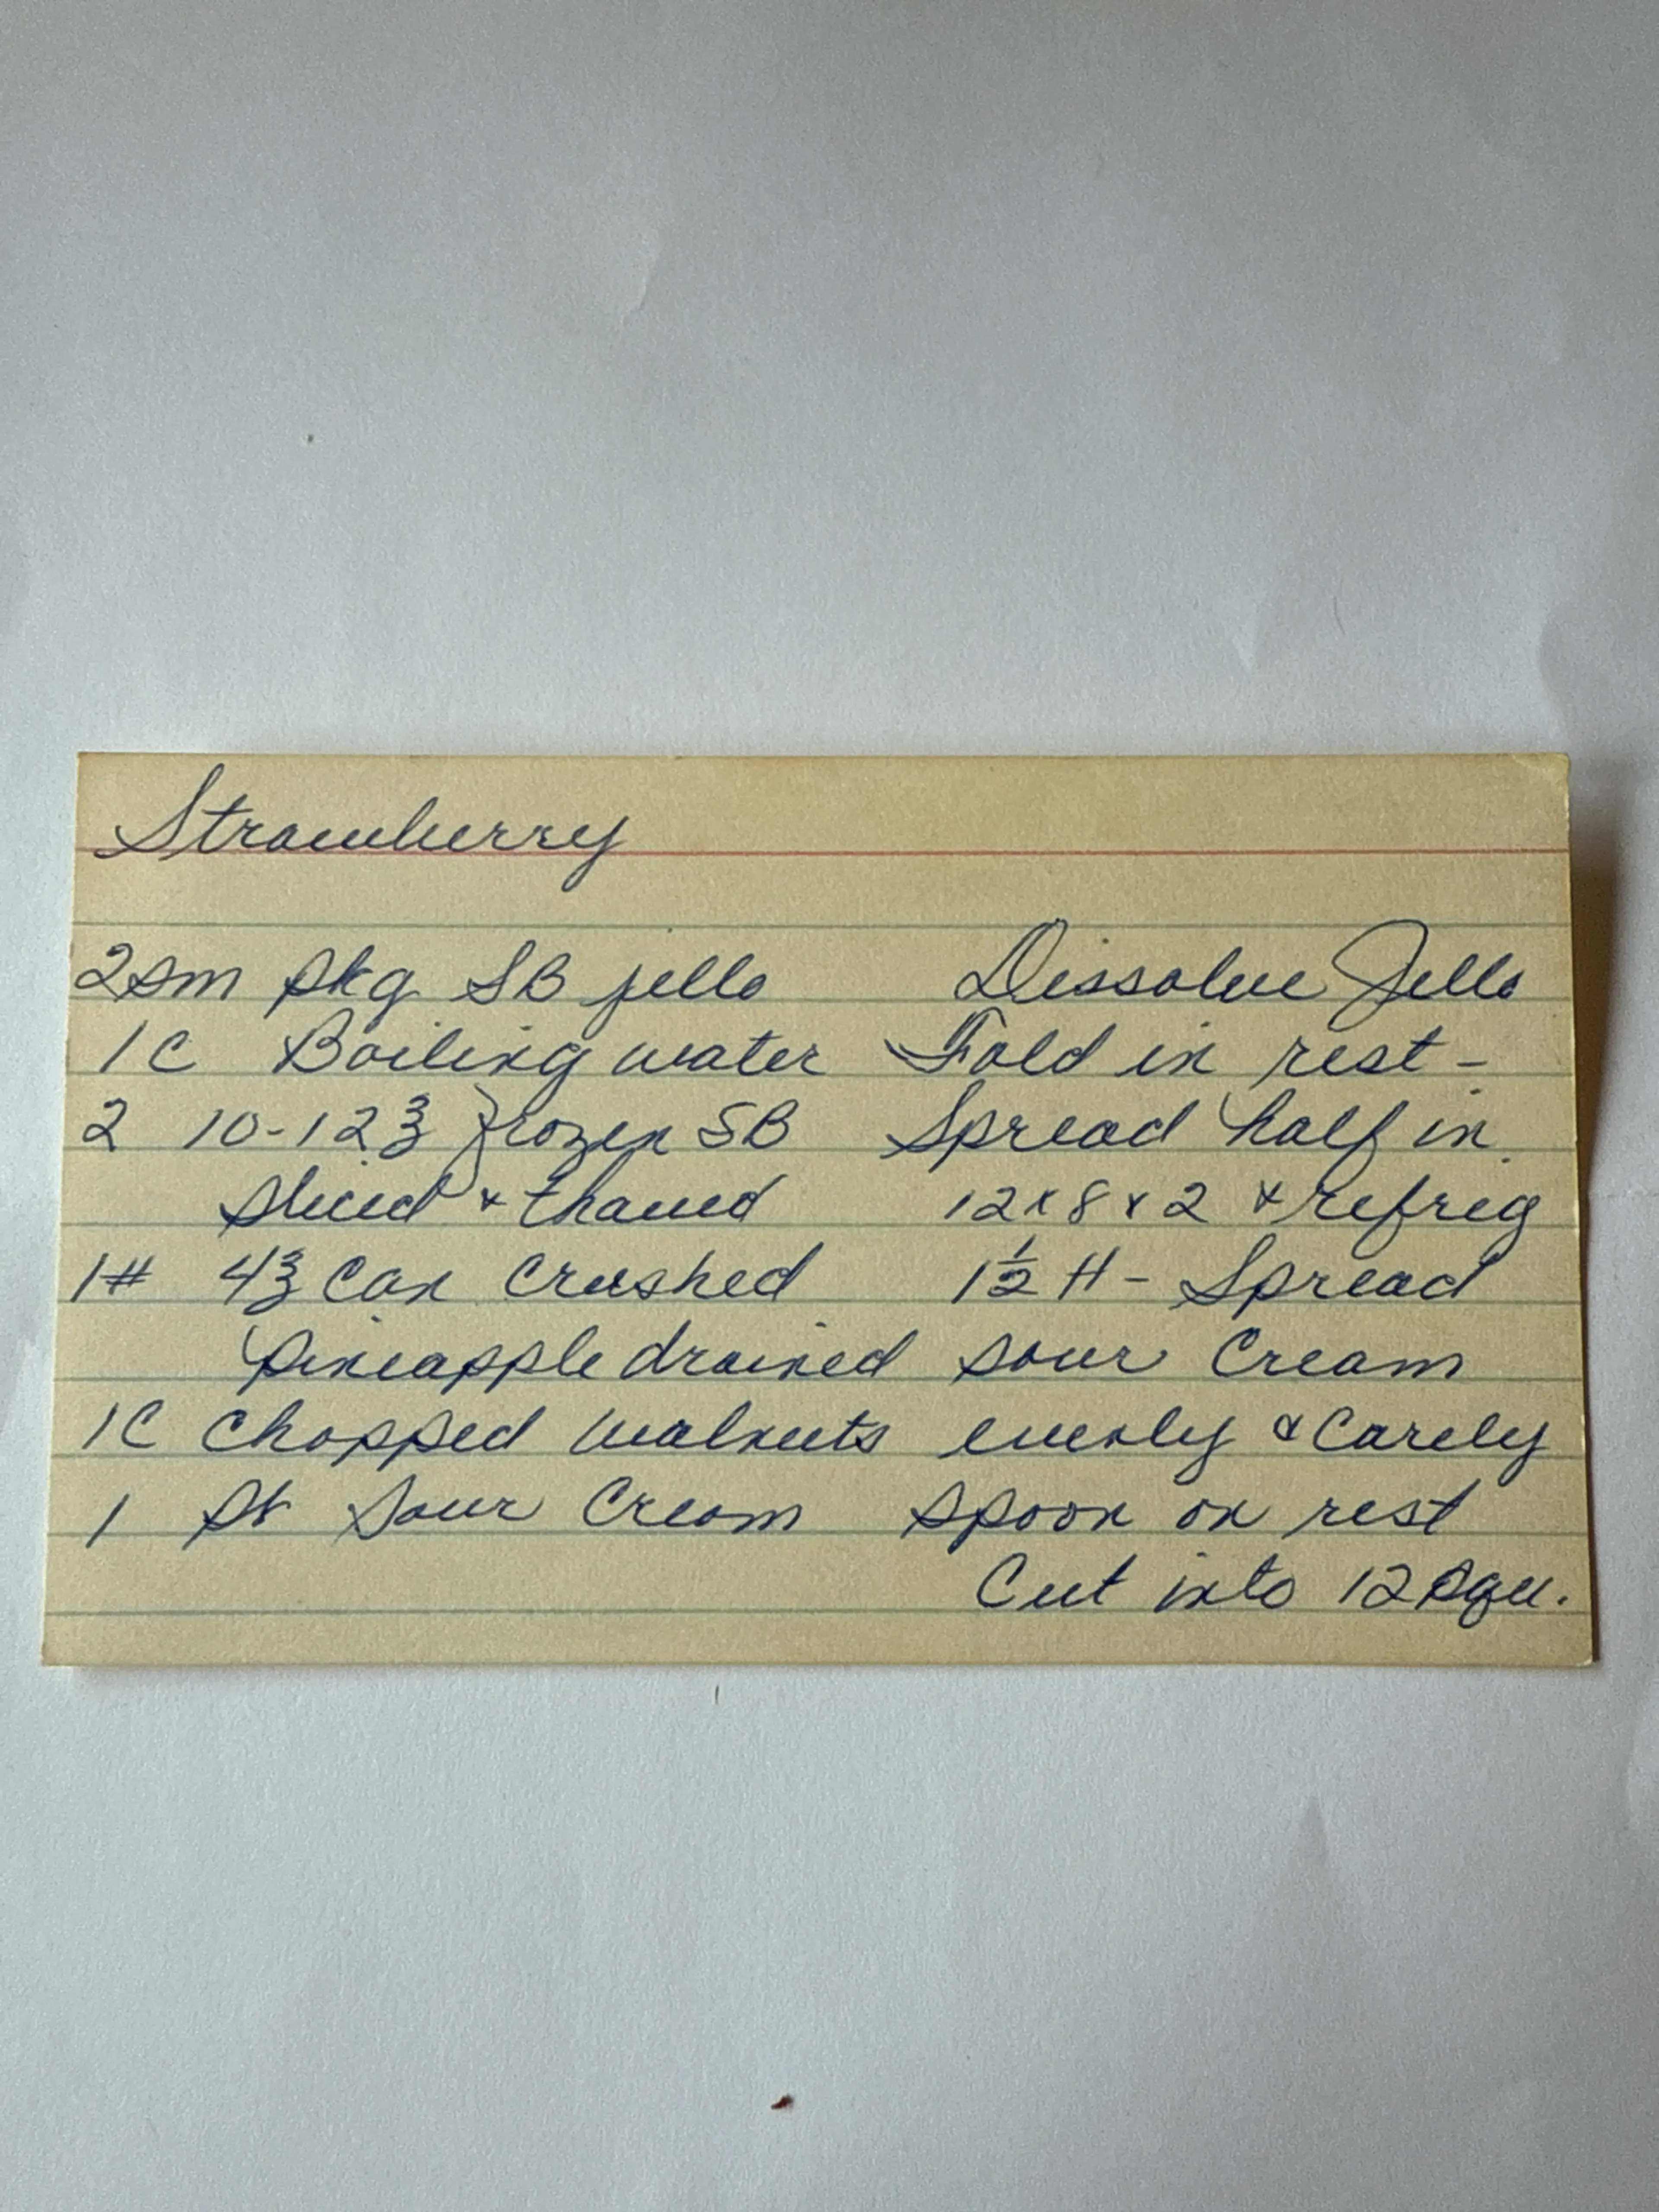 Strawberry
2 sm pkg SB jello
1 C Boiling water
2 10-12℥ frozen SB
sliced & thawed
1# 4℥ Can Crushed
Pineapple drained
1C Chopped Walnuts
1 pt Sour Cream
Dissolve Jello
Fold in rest -
Spread half in
12 x 8 x 2 & refrig
1½ H - Spread
sour Cream
evenly & Carely
spoon on rest
Cut into 12 squ.